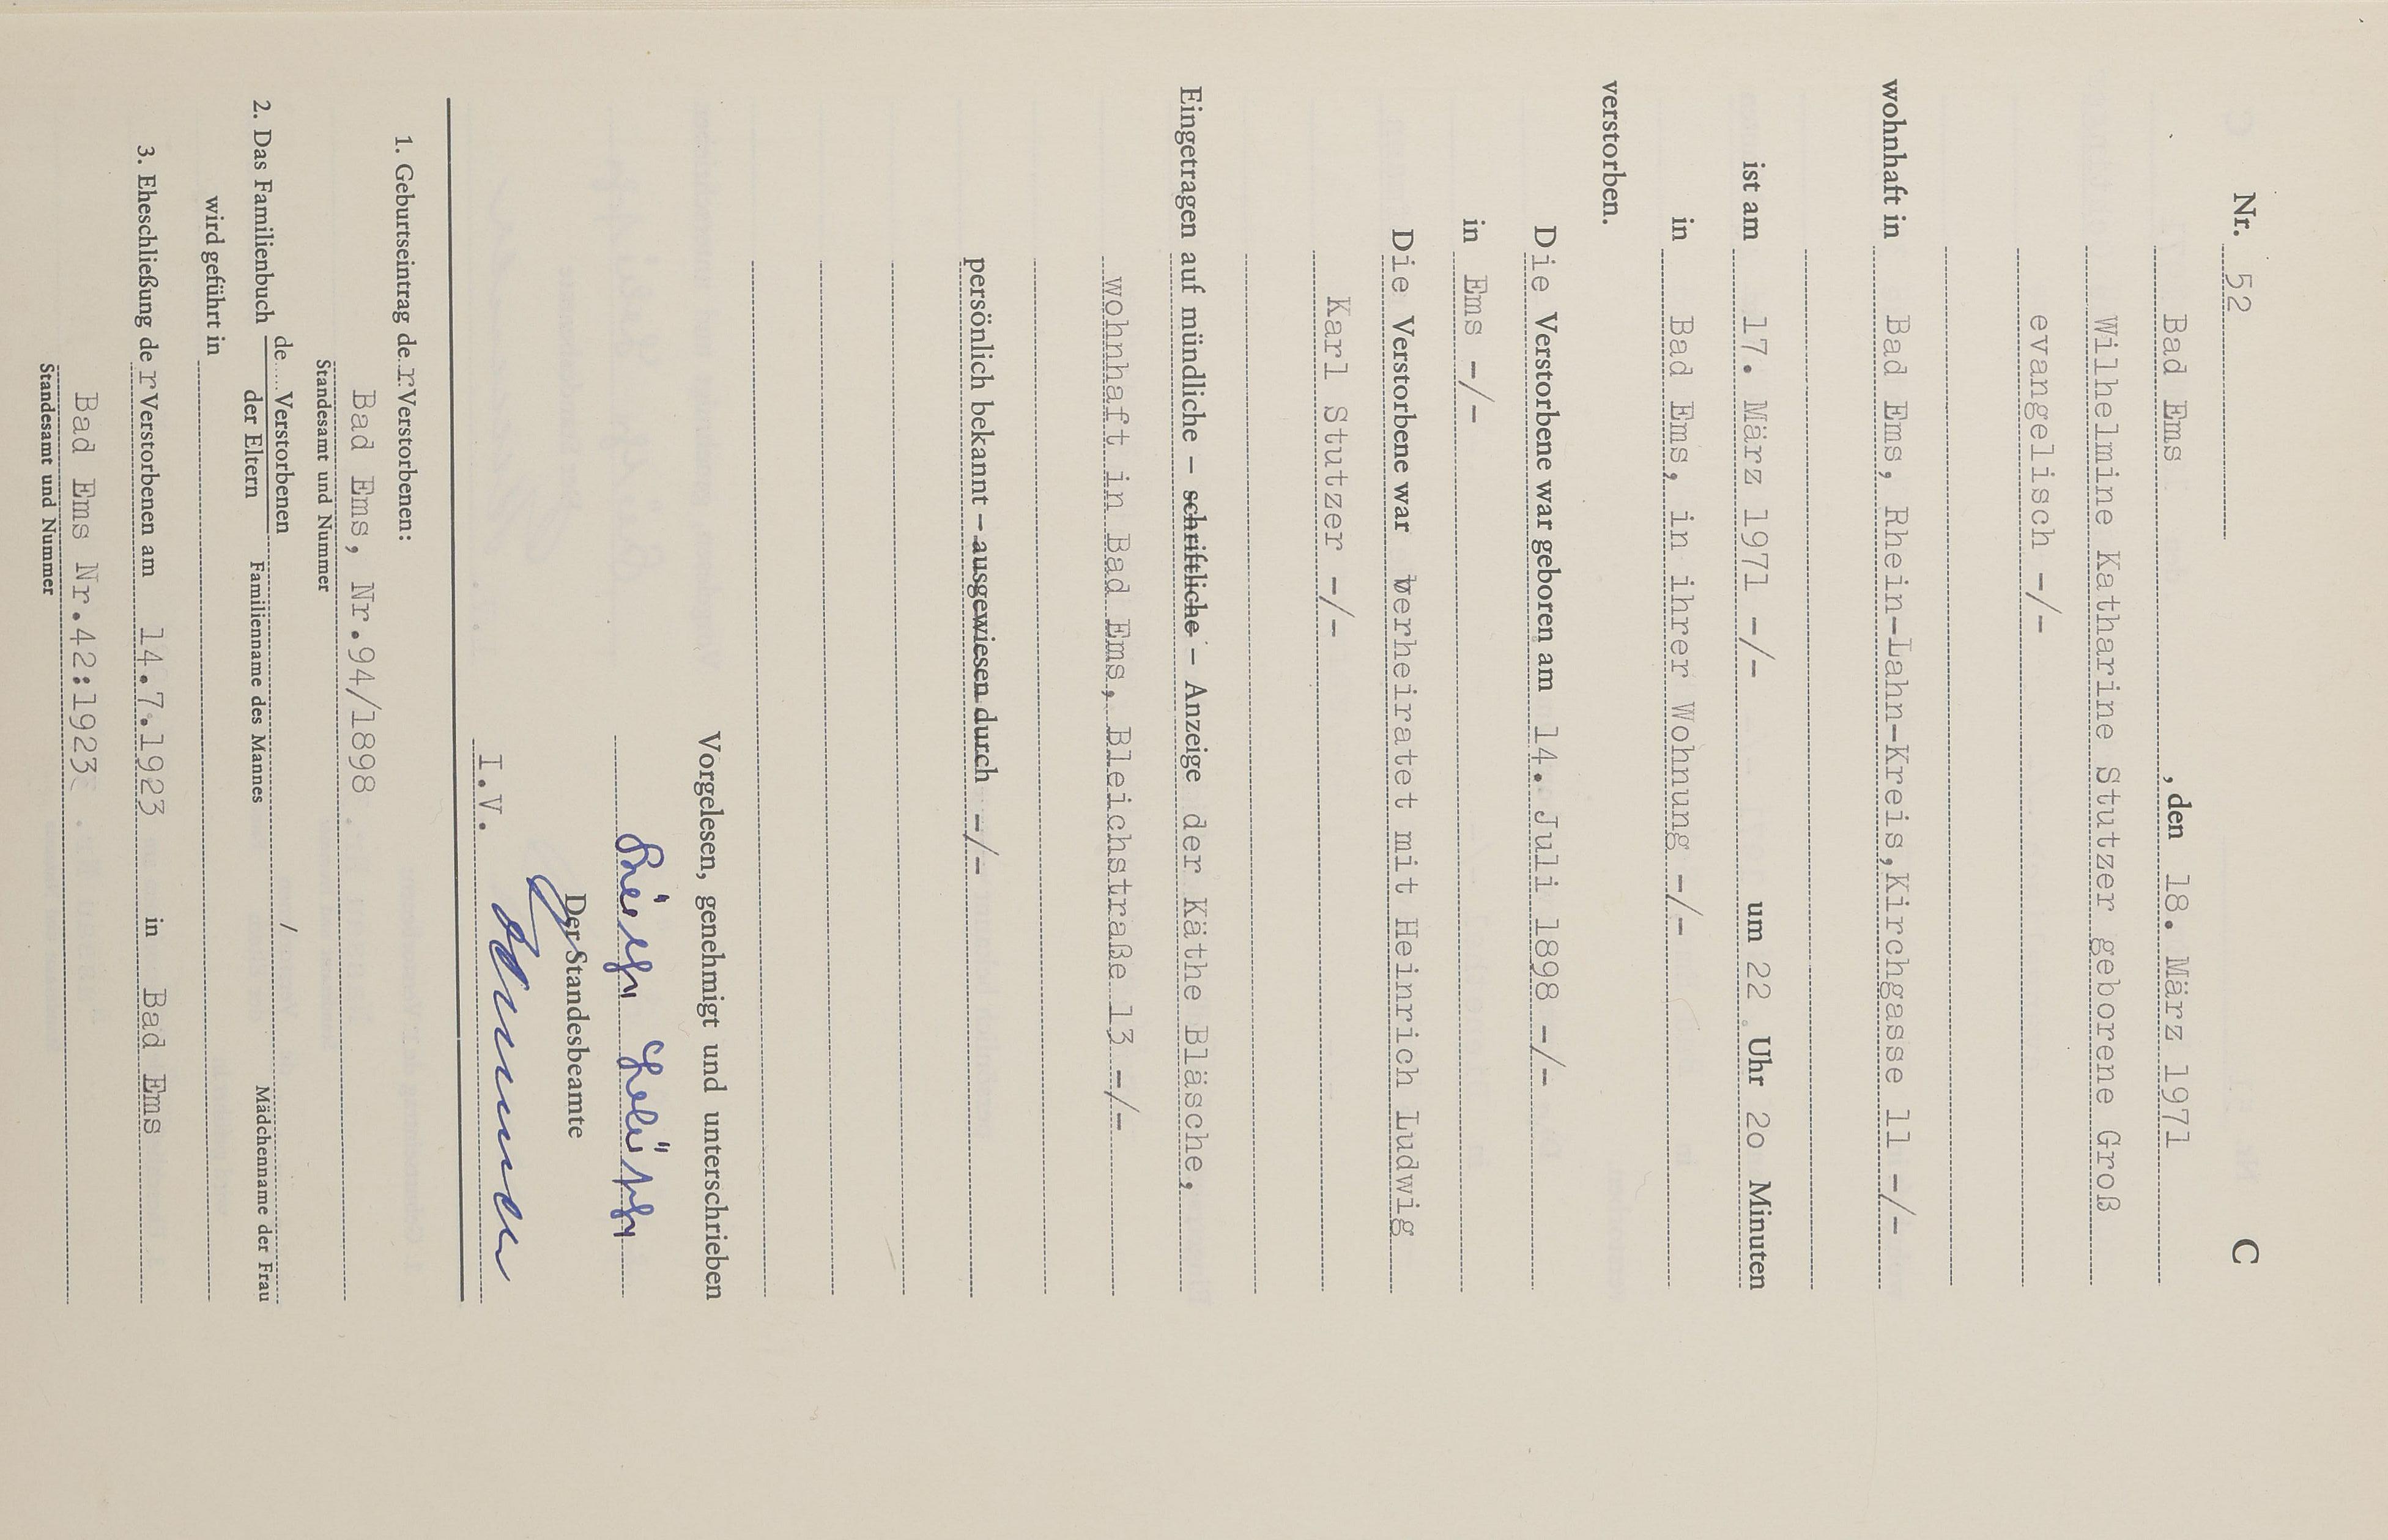 Nr. 52 C
Bad Ems, den 18. März 1971
Wilhelmine Katharine Stutzer geborene Groß
evangelisch -/-
wohnhaft in Bad Ems, Rhein-Lahn-Kreis,Kirchgasse 11 -/-
ist am 17. März 1971 -/- um 22 Uhr 2o Minuten
in Bad Ems, in ihrer Wohnung -/-
verstorben.
Die Verstorbene war geboren am 14. Juli 1898 -/-
in Ems -/-
Die Verstorbene war verheiratet mit Heinrich Ludwig
Karl Stutzer -/-
Eingetragen auf mündliche – schriftliche – Anzeige der Käthe Bläsche,
wohnhaft in Bad Ems, Bleichstraße 13 -/-
persönlich bekannt – ausgewiesen durch -/-
Vorgelesen, genehmigt und unterschrieben
Der Standesbeamte
I.V.
1. Geburtseintrag der Verstorbenen:
Bad Ems, Nr.94/1898
Standesamt und Nummer
2. Das Familienbuch de..... Verstorbenen /
der Eltern Familienname des Mannes Mädchenname der Frau
wird geführt in
3. Eheschließung der Verstorbenen am 14.7.1923 in Bad Ems
Bad Ems Nr.42:1923
Standesamt und Nummer